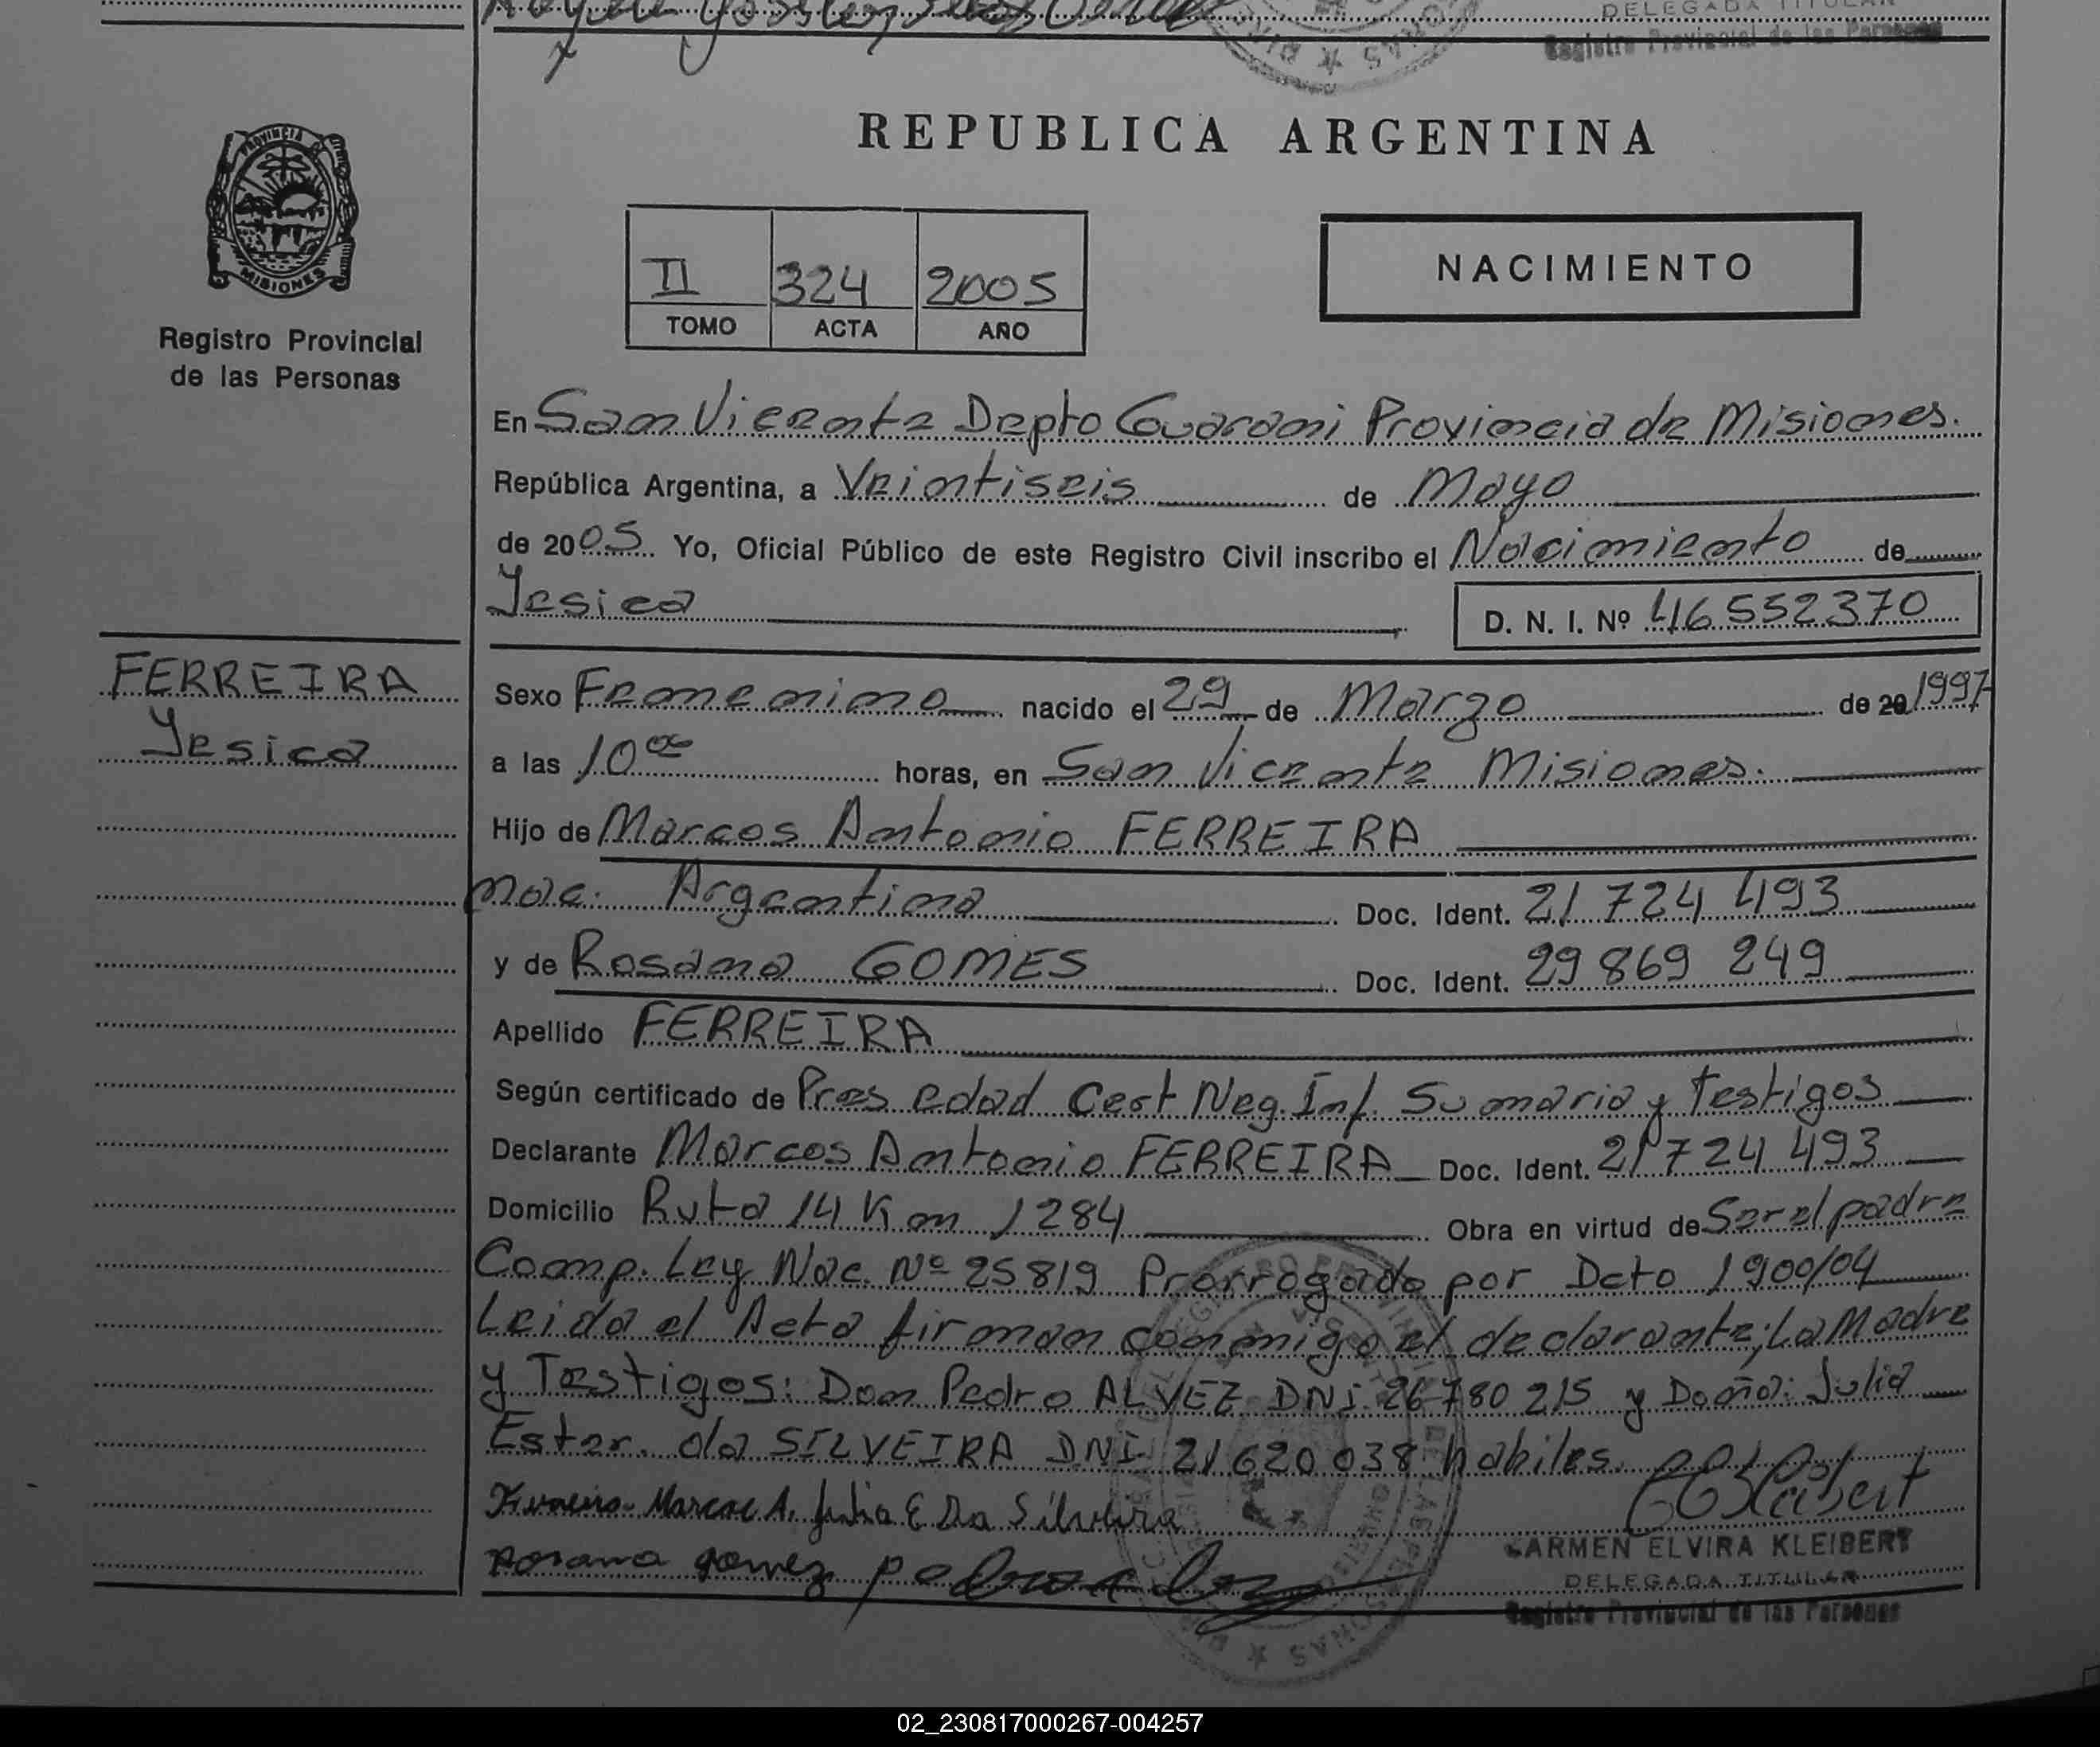 DELEGADA TITULAR
Registro Provincial de las Personas
PROVINCIA DE
MISIONES
Registro Provincial
de las Personas
REPUBLICA ARGENTINA
II 324 2005
TOMO ACTA AÑO
NACIMIENTO
En San Vicente Depto Guarani Provincia de Misiones.
República Argentina, a Veintiseis de Mayo
de 2005 Yo, Oficial Público de este Registro Civil inscribo el Nacimiento de
Yesica
D. N. I. Nº 46 552370
FERREIRA
Yesica
Sexo Femenino nacido el 29 de Marzo de 20 1997
a las 10 oo horas, en San Vicente Misiones.
Hijo de Marcos Antonio FERREIRA
nac. Argentina Doc. Ident. 21 724 493
y de Rosana GOMES Doc. Ident. 29 869 249
Apellido FERREIRA
Según certificado de Pres edad Cert Neg. Inf. Sumaria y testigos
Declarante Marcos Antonio FERREIRA Doc. Ident. 21 724 493
Domicilio Ruta 14 Km 1284 Obra en virtud de Ser el padre
Comp. Ley Nac. Nº 25819 Prorrogado por Dcto 1900/04
Leida el Acta firman conmigo el declarante; La Madre
y Testigos: Don Pedro ALVEZ DNI 26780 215 y Doña: Julia
Ester da SILVEIRA DNI 21 620 038 habiles.
Ferreira Marcos A. Julia E Da Silveira
Rosana gomez
CARMEN ELVIRA KLEIBERT
DELEGADA TITULAR
Registro Provincial de las Personas
02_230817000267-004257